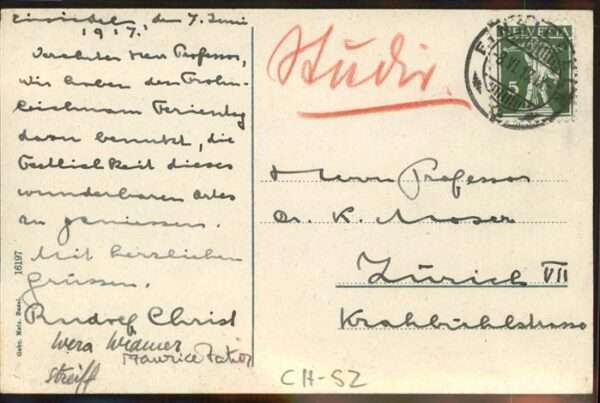 Einsiedeln den 7. Juni
1917.
Verehrter Herr Professor,
wir haben den Frohn-
leichnam Ferientag
dazu benutzt, die
Festlichkeit dieses
wunderbaren Ortes
zu geniessen.
Mit herzlichen
Grüssen.
Rudolf Christ
Wera
Maurice
Streiff
16197
Gebr. Metz, Basel.
Studio.
HELVETIA
5
Herrn Professor
Dr. K. Moser
Zürich VII
Krahbühlstrasse
CH-SZ